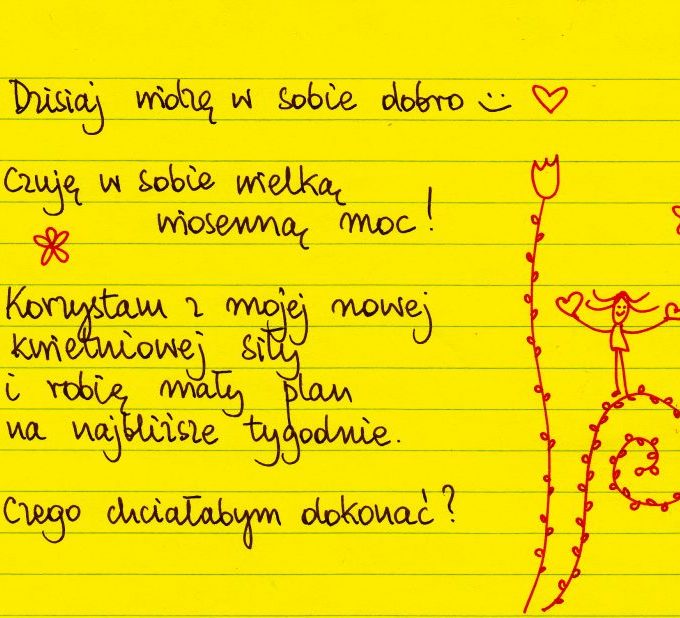 Dzisiaj widzę w sobie dobro :)
Czuję w sobie wielką
wiosenną moc!
Korzystam z mojej nowej
kwietniowej siły
i robię mały plan
na najbliższe tygodnie.
Czego chciałabym dokonać?